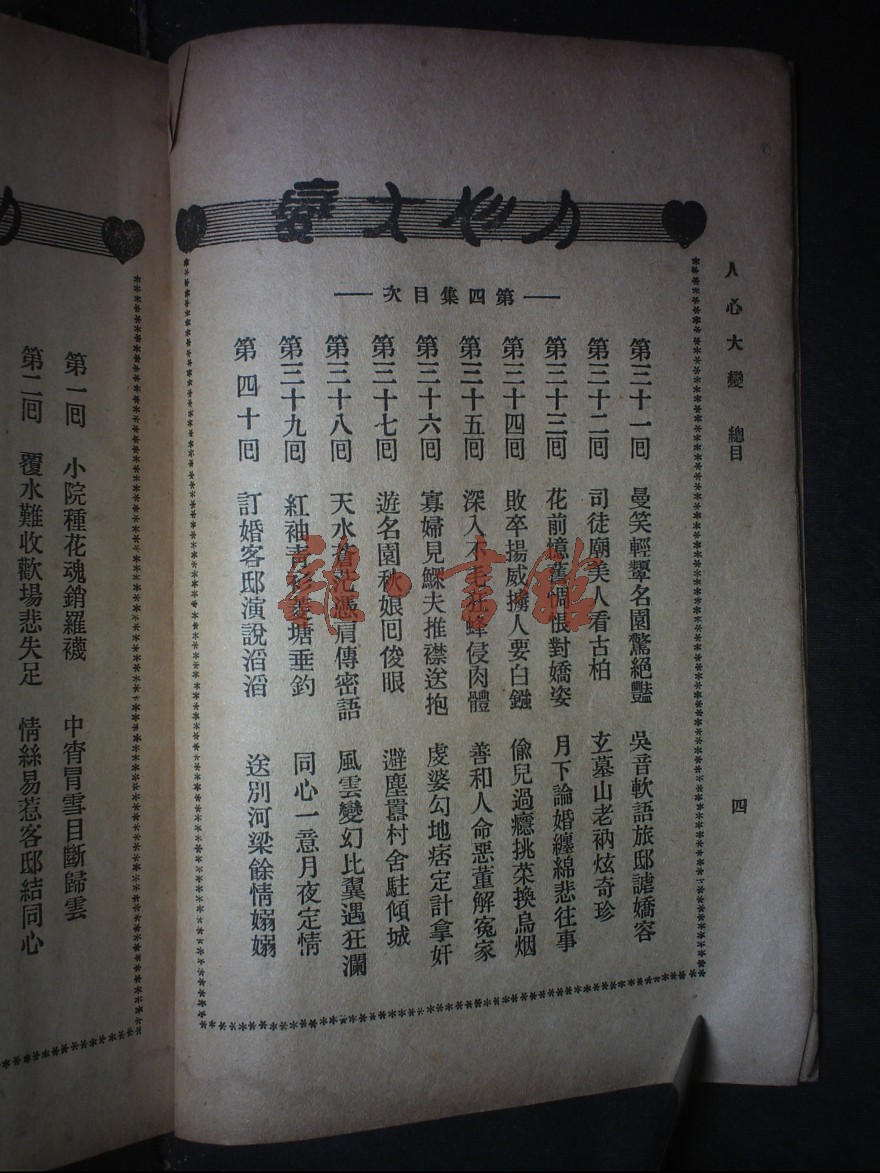 人心大變 總目
四
人心大變
第四集目次
第三十一回 曼笑輕顰名園驚絕豔 吳音軟語旅邸謔嬌容
第三十二回 司徒廟美人看古柏 玄墓山老衲炫奇珍
第三十三回 花前憶舊惆悵對嬌姿 月下論婚纏綿悲往事
第三十四回 敗卒揚威擄人要白鏹 偷兒過癮挑菜換烏烟
第三十五回 深入不毛狂蜂侵肉體 善和人命惡董解冤家
第三十六回 寡婦見鰥夫推襟送抱 虔婆勾地痞定計拿奸
第三十七回 遊名園秋娘回俊眼 避塵囂村舍駐傾城
第三十八回 天水蒼茫憑肩傳密語 風雲變幻比翼遇狂瀾
第三十九回 紅袖青衫 塘垂釣 同心一意月夜定情
第四十回 訂婚客邸演說滔滔 送別河梁餘情嫋嫋
第一回 小院種花魂銷羅襪 中宵冒雪目斷歸雲
第二回 覆水難收歡場悲失足 情絲易惹客邸結同心
書館